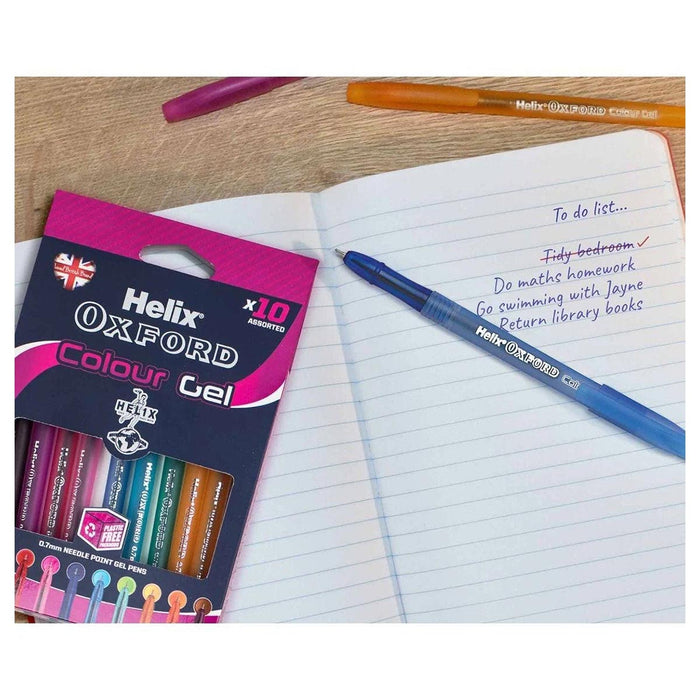 Helix® OXFORD Colour Gel
To do list...
Tidy bedroom ✓
Do maths homework
Go swimming with Jayne
Peturn library books
Helix® OXFORD Gel
Helix®
OXFORD
Colour Gel
x10
ASSORTED
HELIX
PLASTIC
FREE
PACKAGING
0.7mm NEEDLE POINT GEL PENS